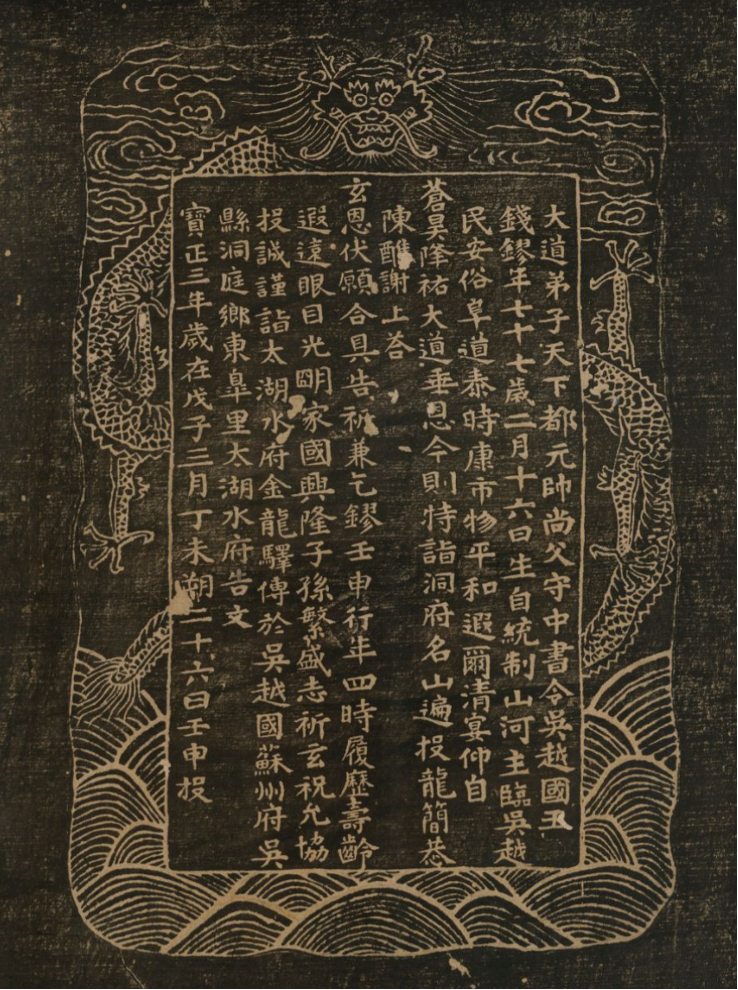 大道弟子天下都元帥尚父守中書令吳越國王
錢鏐年七十七歲二月十六日生自統制山河主臨吳越
民安俗阜道泰時康市物平和遐爾清宴仰自
蒼昊降祐大道垂恩今則特詣洞府名山遍投龍簡恭
陳醮謝上荅
玄恩伏願合具告祈兼乞鏐壬申行年四時履歷壽齡
遐遠眼目光明家國興隆子孫繁盛志祈玄祝允協
投誠謹詣太湖水府金龍驛傳於吳越國蘇州府吳
縣洞庭鄉東皐里太湖水府告文
寶正三年歲在戊子三月丁未朔二十六日壬申投